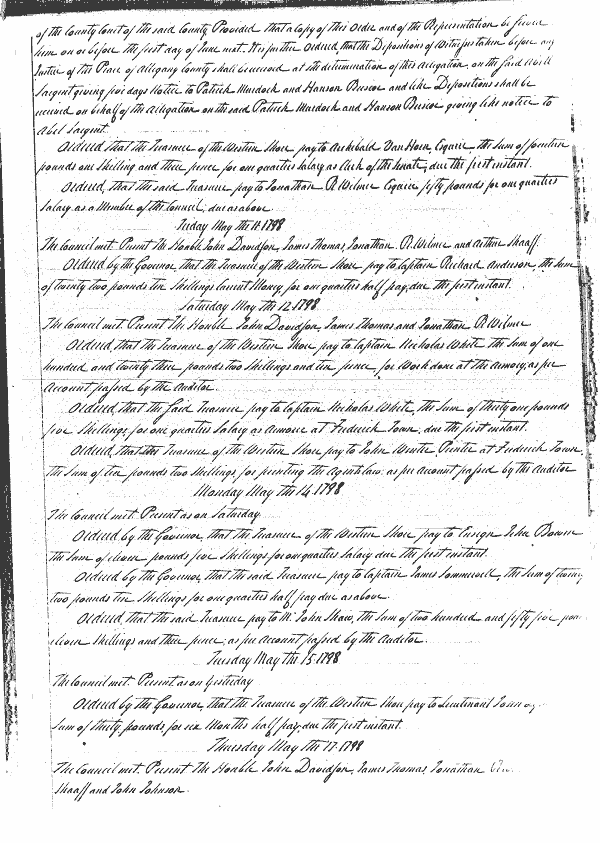 of the County Court of the said County Provided that a Copy of this Order and of the Representation be served
him on or before the first day of June inst. It is further Ordered, that the Depositions of Witnesses taken before any
Justice of the Peace of Allegany County shall be received at the determination of this Allegation, on the said Abell
Sargent giving five days Notice to Patrick Murdock and Hanson Briscoe and like Depositions shall be
received on behalf of the Allegation on the said Patrick Murdock and Hanson Briscoe giving like notice to
Abel Sargent.
Ordered that the Treasurer of the Western Shore pay to Archibald Van Horn, Esquire the Sum of fourteen
pounds one Shilling and three pence for one quarters Salary as Clerk of the Senate, due the first instant.
Ordered, that the said Treasurer pay to Jonathan R. Wilmer Esquire fifty pounds for one quarters
Salary as a Member of the Council, due as above.
Friday May the 11. 1798
The Council met. Present The Honble John Davidson, James Thomas, Jonathan R. Wilmer and Arthur Shaaff.
Ordered by the Governor, that the Treasurer of the Western Shore pay to Captain Richard Anderson, the Sum
of twenty two pounds ten Shillings Current Money for one quarters half pay, due the first instant.
Saturday May the 12. 1798
The Council met. Present The Honble John Davidson, James Thomas and Jonathan R. Wilmer
Ordered, that the Treasurer of the Western Shore pay to Captain Nicholas White the Sum of one
hundred and twenty three pounds two Shillings and ten pence for Work done at the armory; as per
Account passed by the Auditor.
Ordered, that the said Treasurer pay to Captain Nicholas White, the Sum of thirty one pounds
five Shillings, for one quarters Salary as Armourer at Frederick Town, due the first instant.
Ordered, that the Treasurer of the Western Shore pay to John Winter Printer at Frederick Town,
the Sum of ten pounds two Shillings, for printing the Agents law as per Account passed by the Auditor
Monday May the 14. 1798
The Council met. Present as on Saturday
Ordered by the Governor, that the Treasurer of the Western Shore pay to Ensign John Bowen
the Sum of eleven pounds five Shillings for one quarters Salary due the first instant.
Ordered by the Governor, that the said Treasurer pay to Captain James Sommervell, the Sum of twenty
two pounds ten Shillings for one quarters half pay due as above.
Ordered, that the said Treasurer pay to Mr. John Shaw, the Sum of two hundred and fifty five poun
eleven Shillings and three pence; as per Account passed by the Auditor.
Tuesday May the 15. 1798
The Council met. Present as on Yesterday
Ordered by the Governor, that the Treasurer of the Western Shore pay to Lieutenant
Sum of thirty pounds, for six Months half pay, due the first instant.
Thursday May the 17. 1798
The Council met. Present The Honble John Davidson, James Thomas, Jonathan
Shaaff and John Johnson.